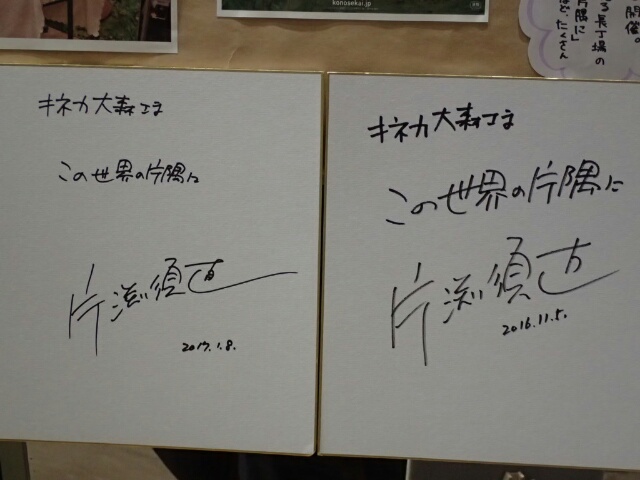 konosekai.jp
開催。
る長丁場の
片隅に」
ほど、たくさん
キネカ大森さま
この世界の片隅に
片渕須直
2017.1.8.
キネカ大森さま
この世界の片隅に
片渕須直
2016.11.5.